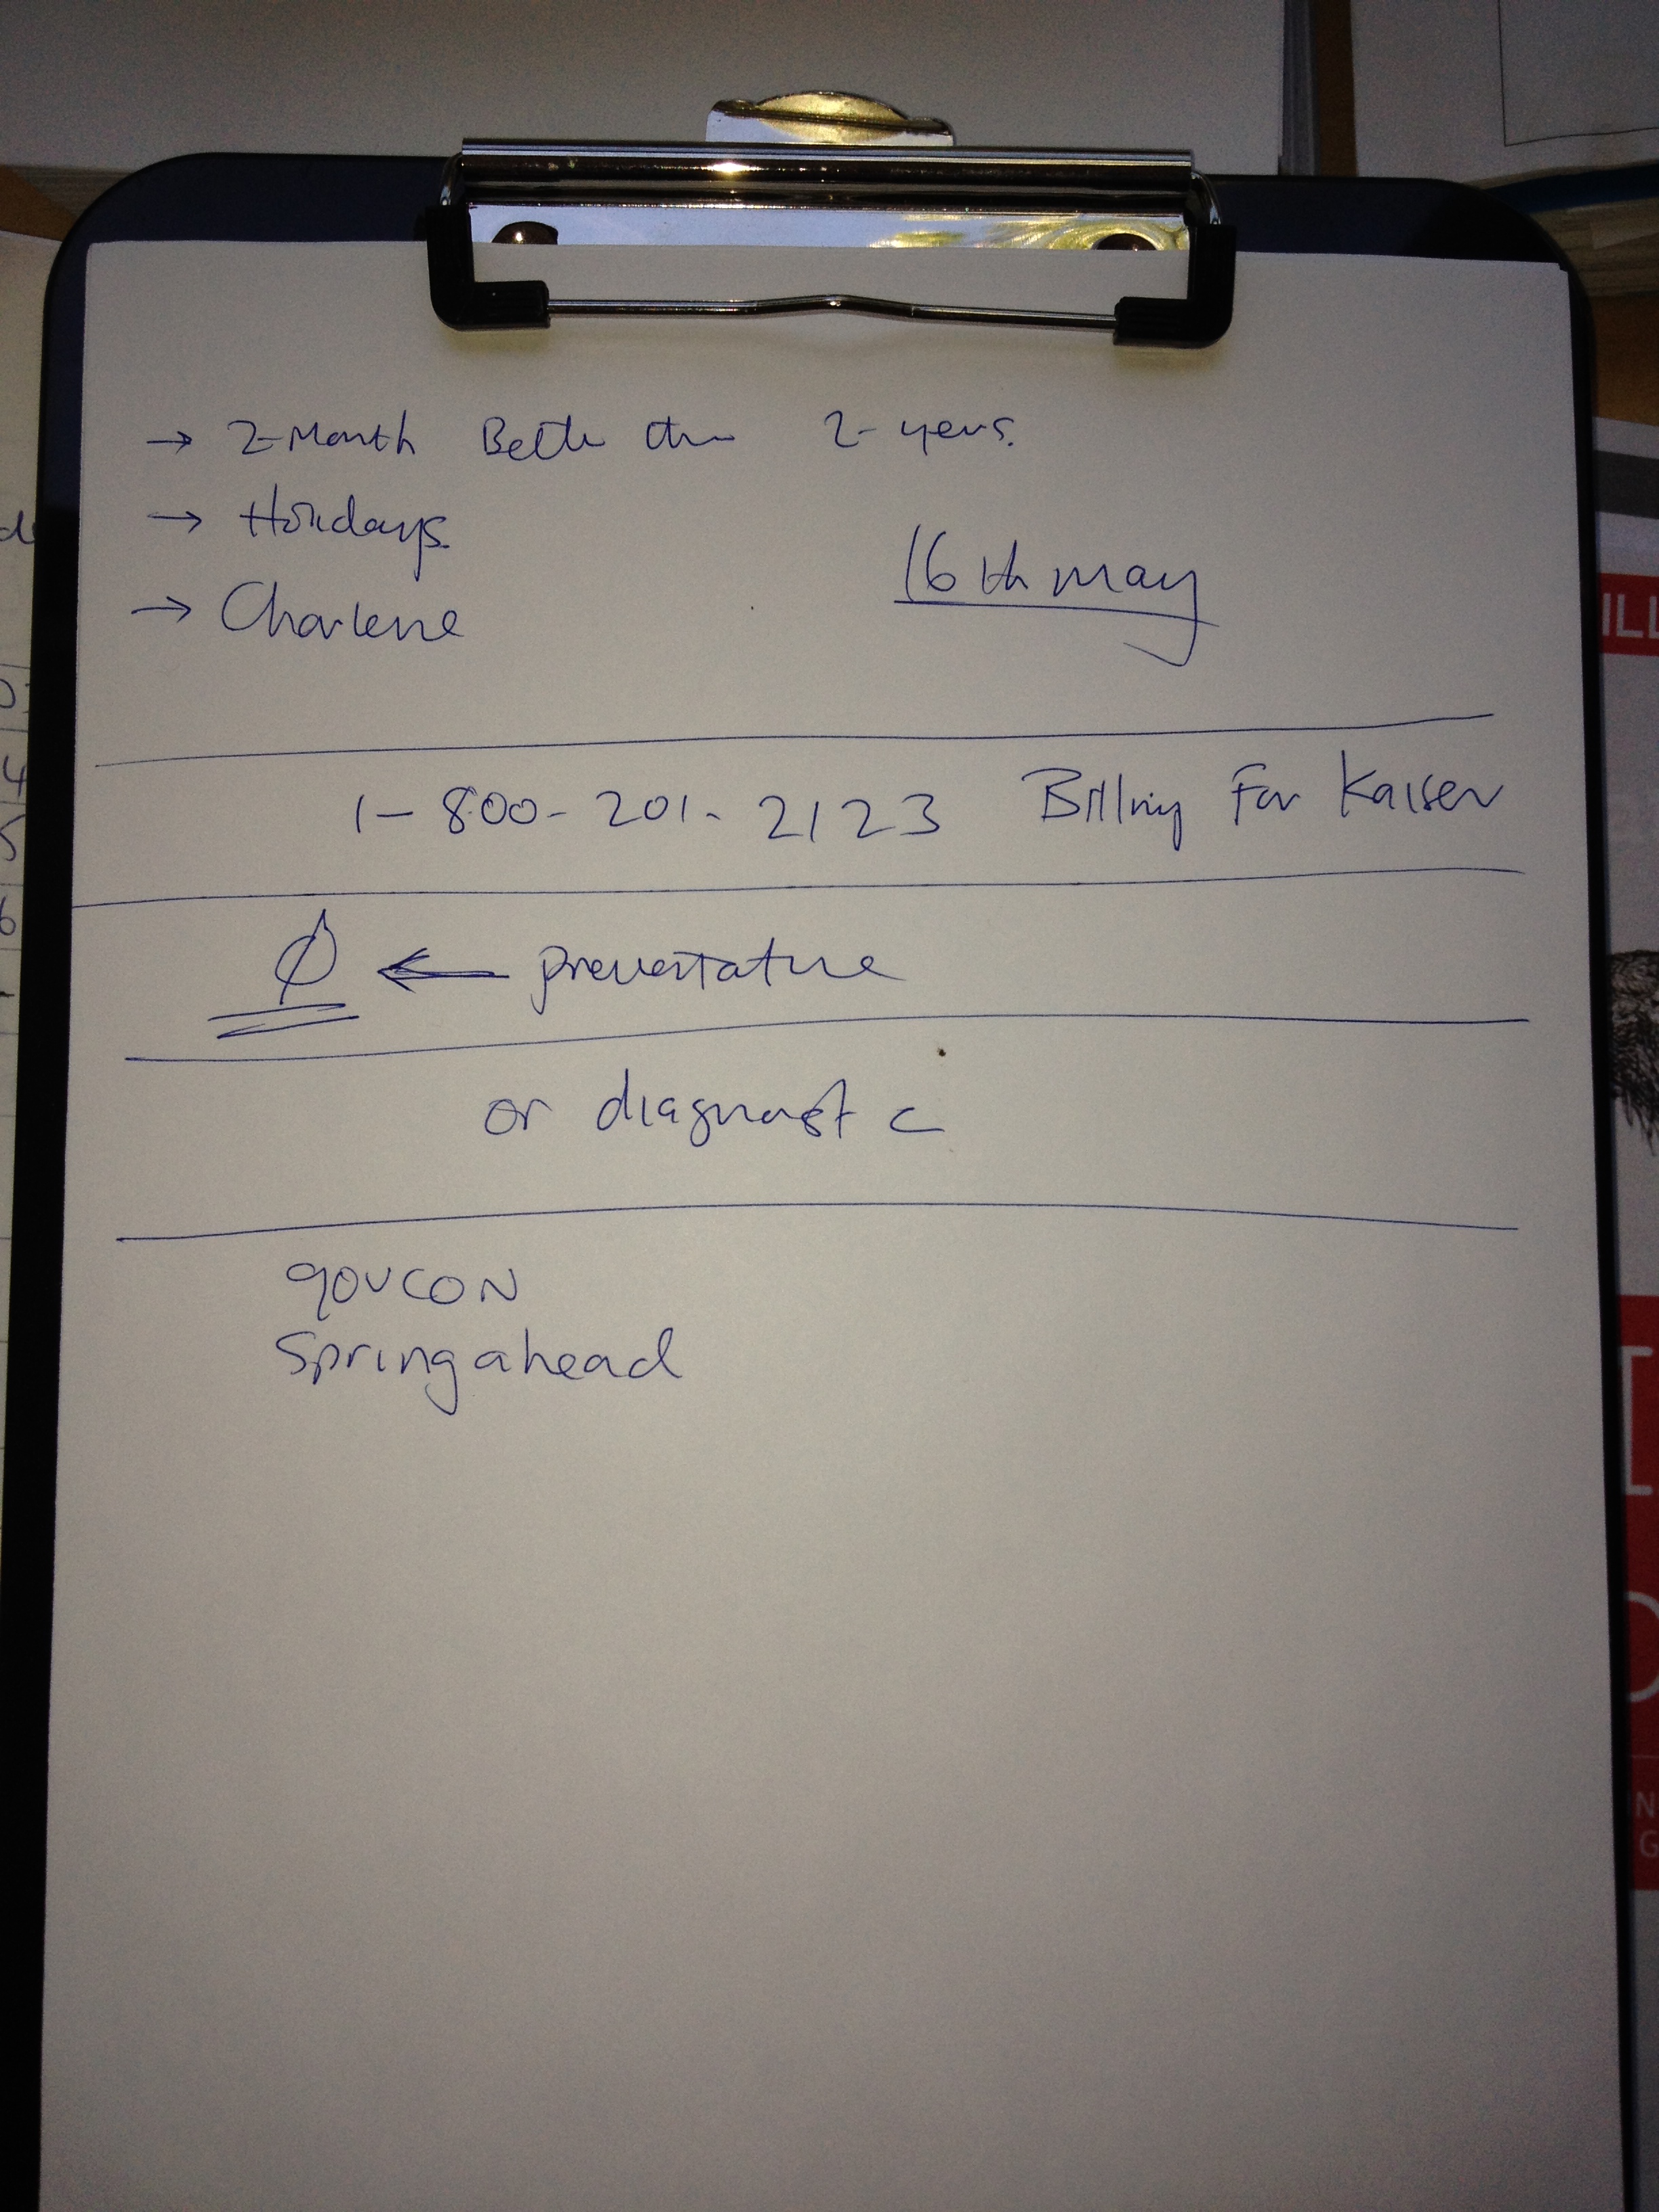 → 2-Month Bette than 2-years.
→ Holidays
→ Charlene
16th may
1-800-201-2123 Billing For Kaiser
Ø ← preventative
or diagnostc
govcon
Springahead
ILL